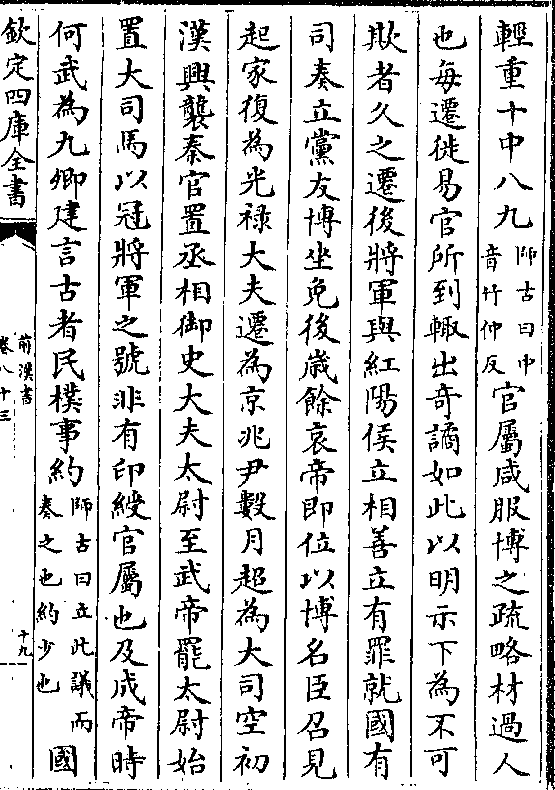 輕重十中八九師古曰中音竹仲反官屬咸服博之疏略材過人
也每遷徙易官所到輒出奇譎如此以明示下為不可
欺者久之遷後將軍與紅陽侯立相善立有罪就國有
司奏立黨友博坐免後歲餘哀帝即位以博名臣召見
起家復為光祿大夫遷為京兆尹數月超為大司空初
漢興襲秦官置丞相御史大夫太尉至武帝罷太尉始
置大司馬以冠將軍之號非有印綬官屬也及成帝時
何武為九卿建言古者民樸事約師古曰立此議而奏之也約少也國
欽定四庫全書
前漢書
卷八十三
十九